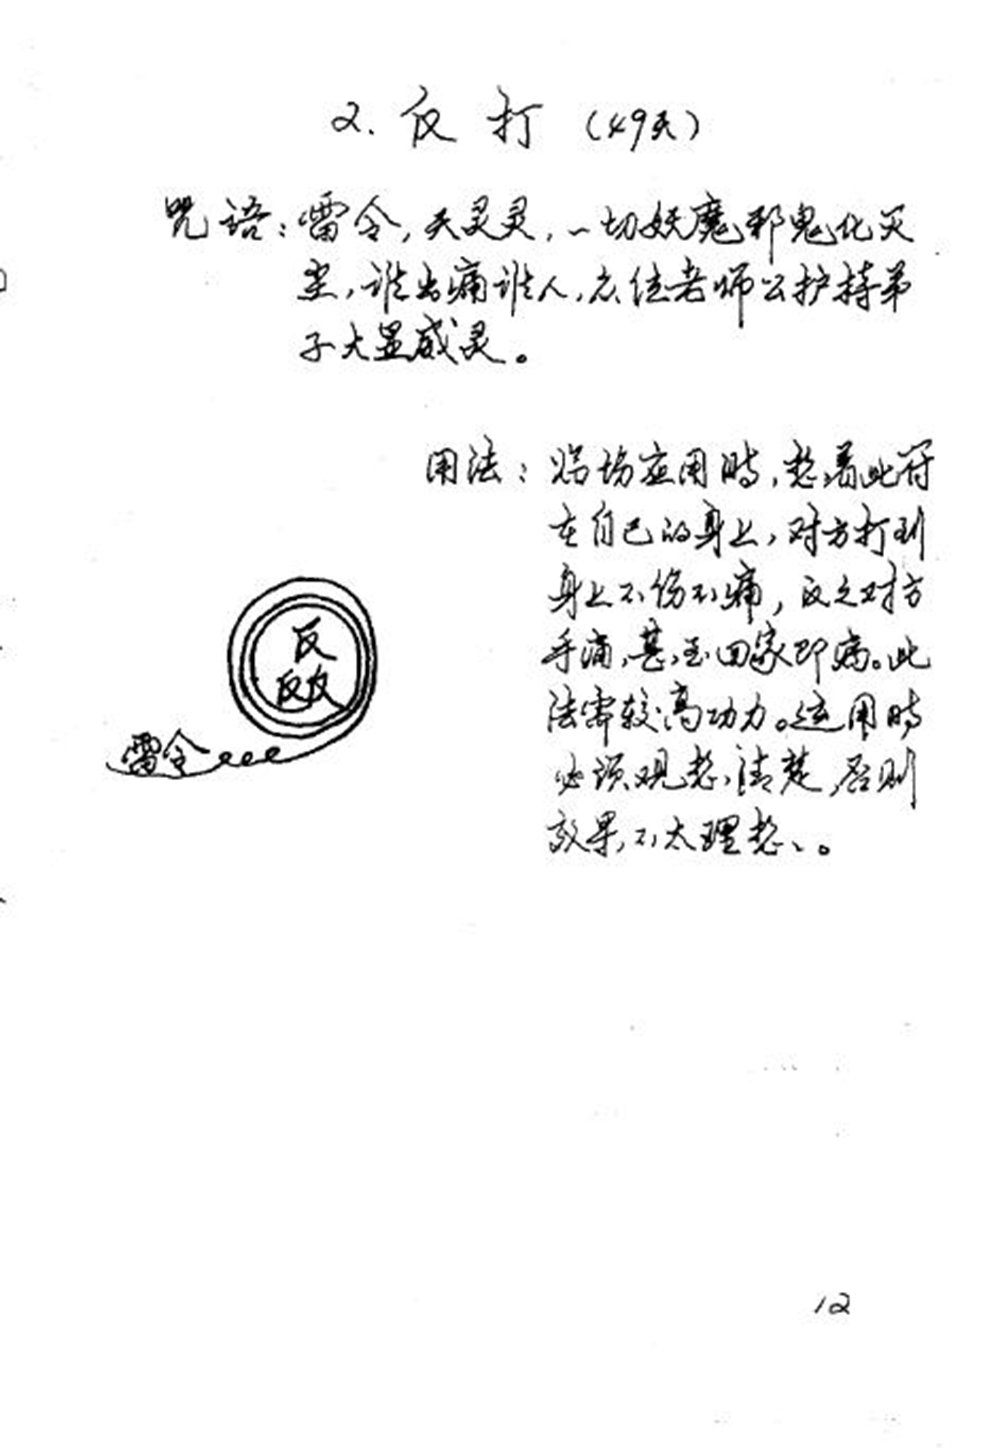 2. 反打 (49天)
咒语：雷令，天灵灵，一切妖魔邪鬼化灭
尘，谁出痛谁人，众位老师公护持弟
子大显威灵。
用法：临场应用時，想着此符
在自己的身上，对方打到
身上不伤不痛，反之对方
手痛，甚至回家即病。此
法需较高功力。运用時
必须观想清楚，否则
效果不太理想。
反
反反
雷令
12